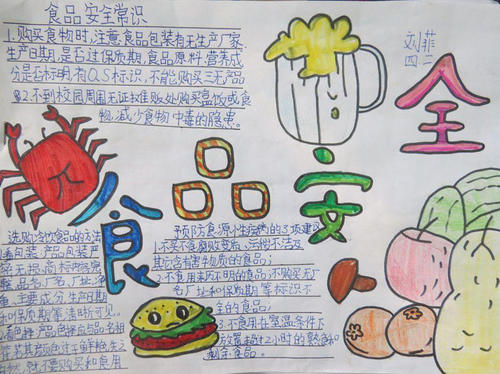 食品安全常识
1.购买食物时,注意食品包装有无生产厂家,
生产日期,是否过保质期,食品原料,营养成
分是否标明,有QS标识,不能购买三无产品
2.不到校园周围无证摊贩处购买盒饭或食
物,减少食物中毒的隐患。
刘菲
四二
食品安全
选购冷饮食品的方法
看包装:产品包装严
密无损,商标内容完
整,品名,厂名,厂址,
量,主要成分,生产日期
和保质期等清晰可见。
产品色择应与品名相
就不要购买和食用
预防食源小生疾病的3项建议
1.不买不食腐败变质、污秽不洁及
其它含有害物质的食品;
2.不食用来历不明的食品;不购买无厂
名厂址和保质期等标识不
全的食品;
3.不食用在室温条件下
放置超过2小时的熟食和
剩余食品。